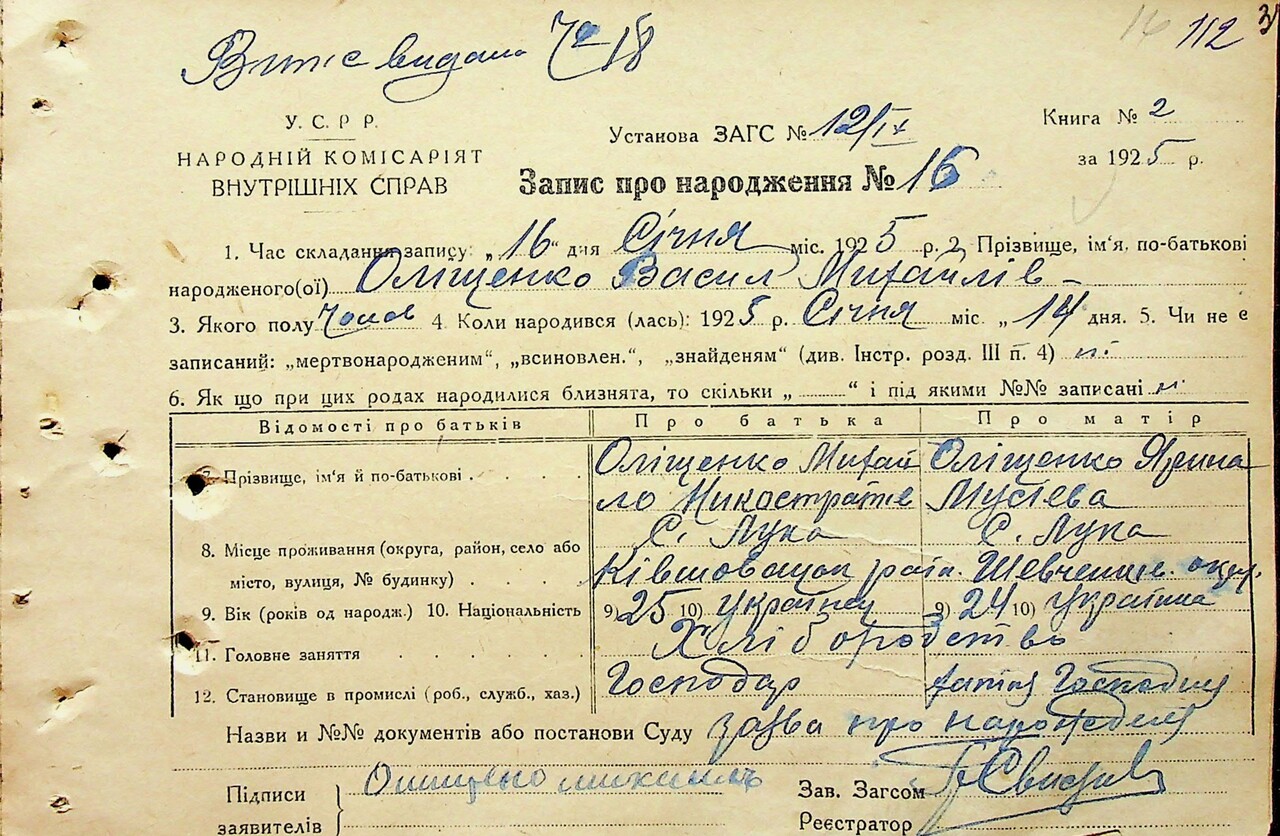 112
Витіс видано
У. С. Р Р.
НАРОДНІЙ КОМІСАРІЯТ
ВНУТРІШНІХ СПРАВ
Установа ЗАГС № 12/IX
Книга № 2
за 1925 р.
Запис про народження № 16
1. Час складання запису: „16" дня Січня міс. 1925 р. 2. Прізвище, ім'я, по-батькові
народженого(ої) Оліщенко Васил Михайлів
3. Якого полу Чолов 4. Коли народився (лась): 1925 р. Січня міс. „14 дня. 5. Чи не є
записаний: „мертвонародженим", „всиновлен.", „знайденям" (див. Інстр. розд. III п. 4) ні
6. Як що при цих родах народилися близнята, то скільки „ " і під якими №№ записані
Відомості про батьків Про батька Про матір
7. Прізвище, ім'я й по-батькові Оліщенко Михай Оліщенко Ярина
ло Никостратів Мусієва
С. Лука С. Лука
8. Місце проживання (округа, район, село або
місто, вулиця, № будинку) Ківшовацьк раїн. Шевченків. окр.
9. Вік (років од народж.) 10. Національність 9) 25 10) Українец 9) 24 10) Українка
11. Головне заняття Хліборобство
12. Становище в промислі (роб., служб., хаз.) Господар Господині
Назви и №№ документів або постанови Суду заява про народженія
Підписи
заявителів
Зав. Загсом
Реєстратор